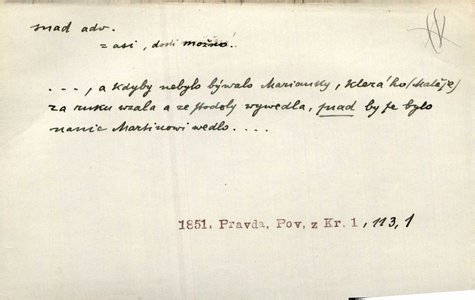 snad adv.
= asi, dosti možná.
...., a kdyby nebylo býwalo Mariansky, která ho (Matěje)
za ruku wzala a ze stodoly wywedla, snad by se bylo
nanic Martinowi wedlo....
1851. Pravda, Pov. z Kr. 1, 113, 1